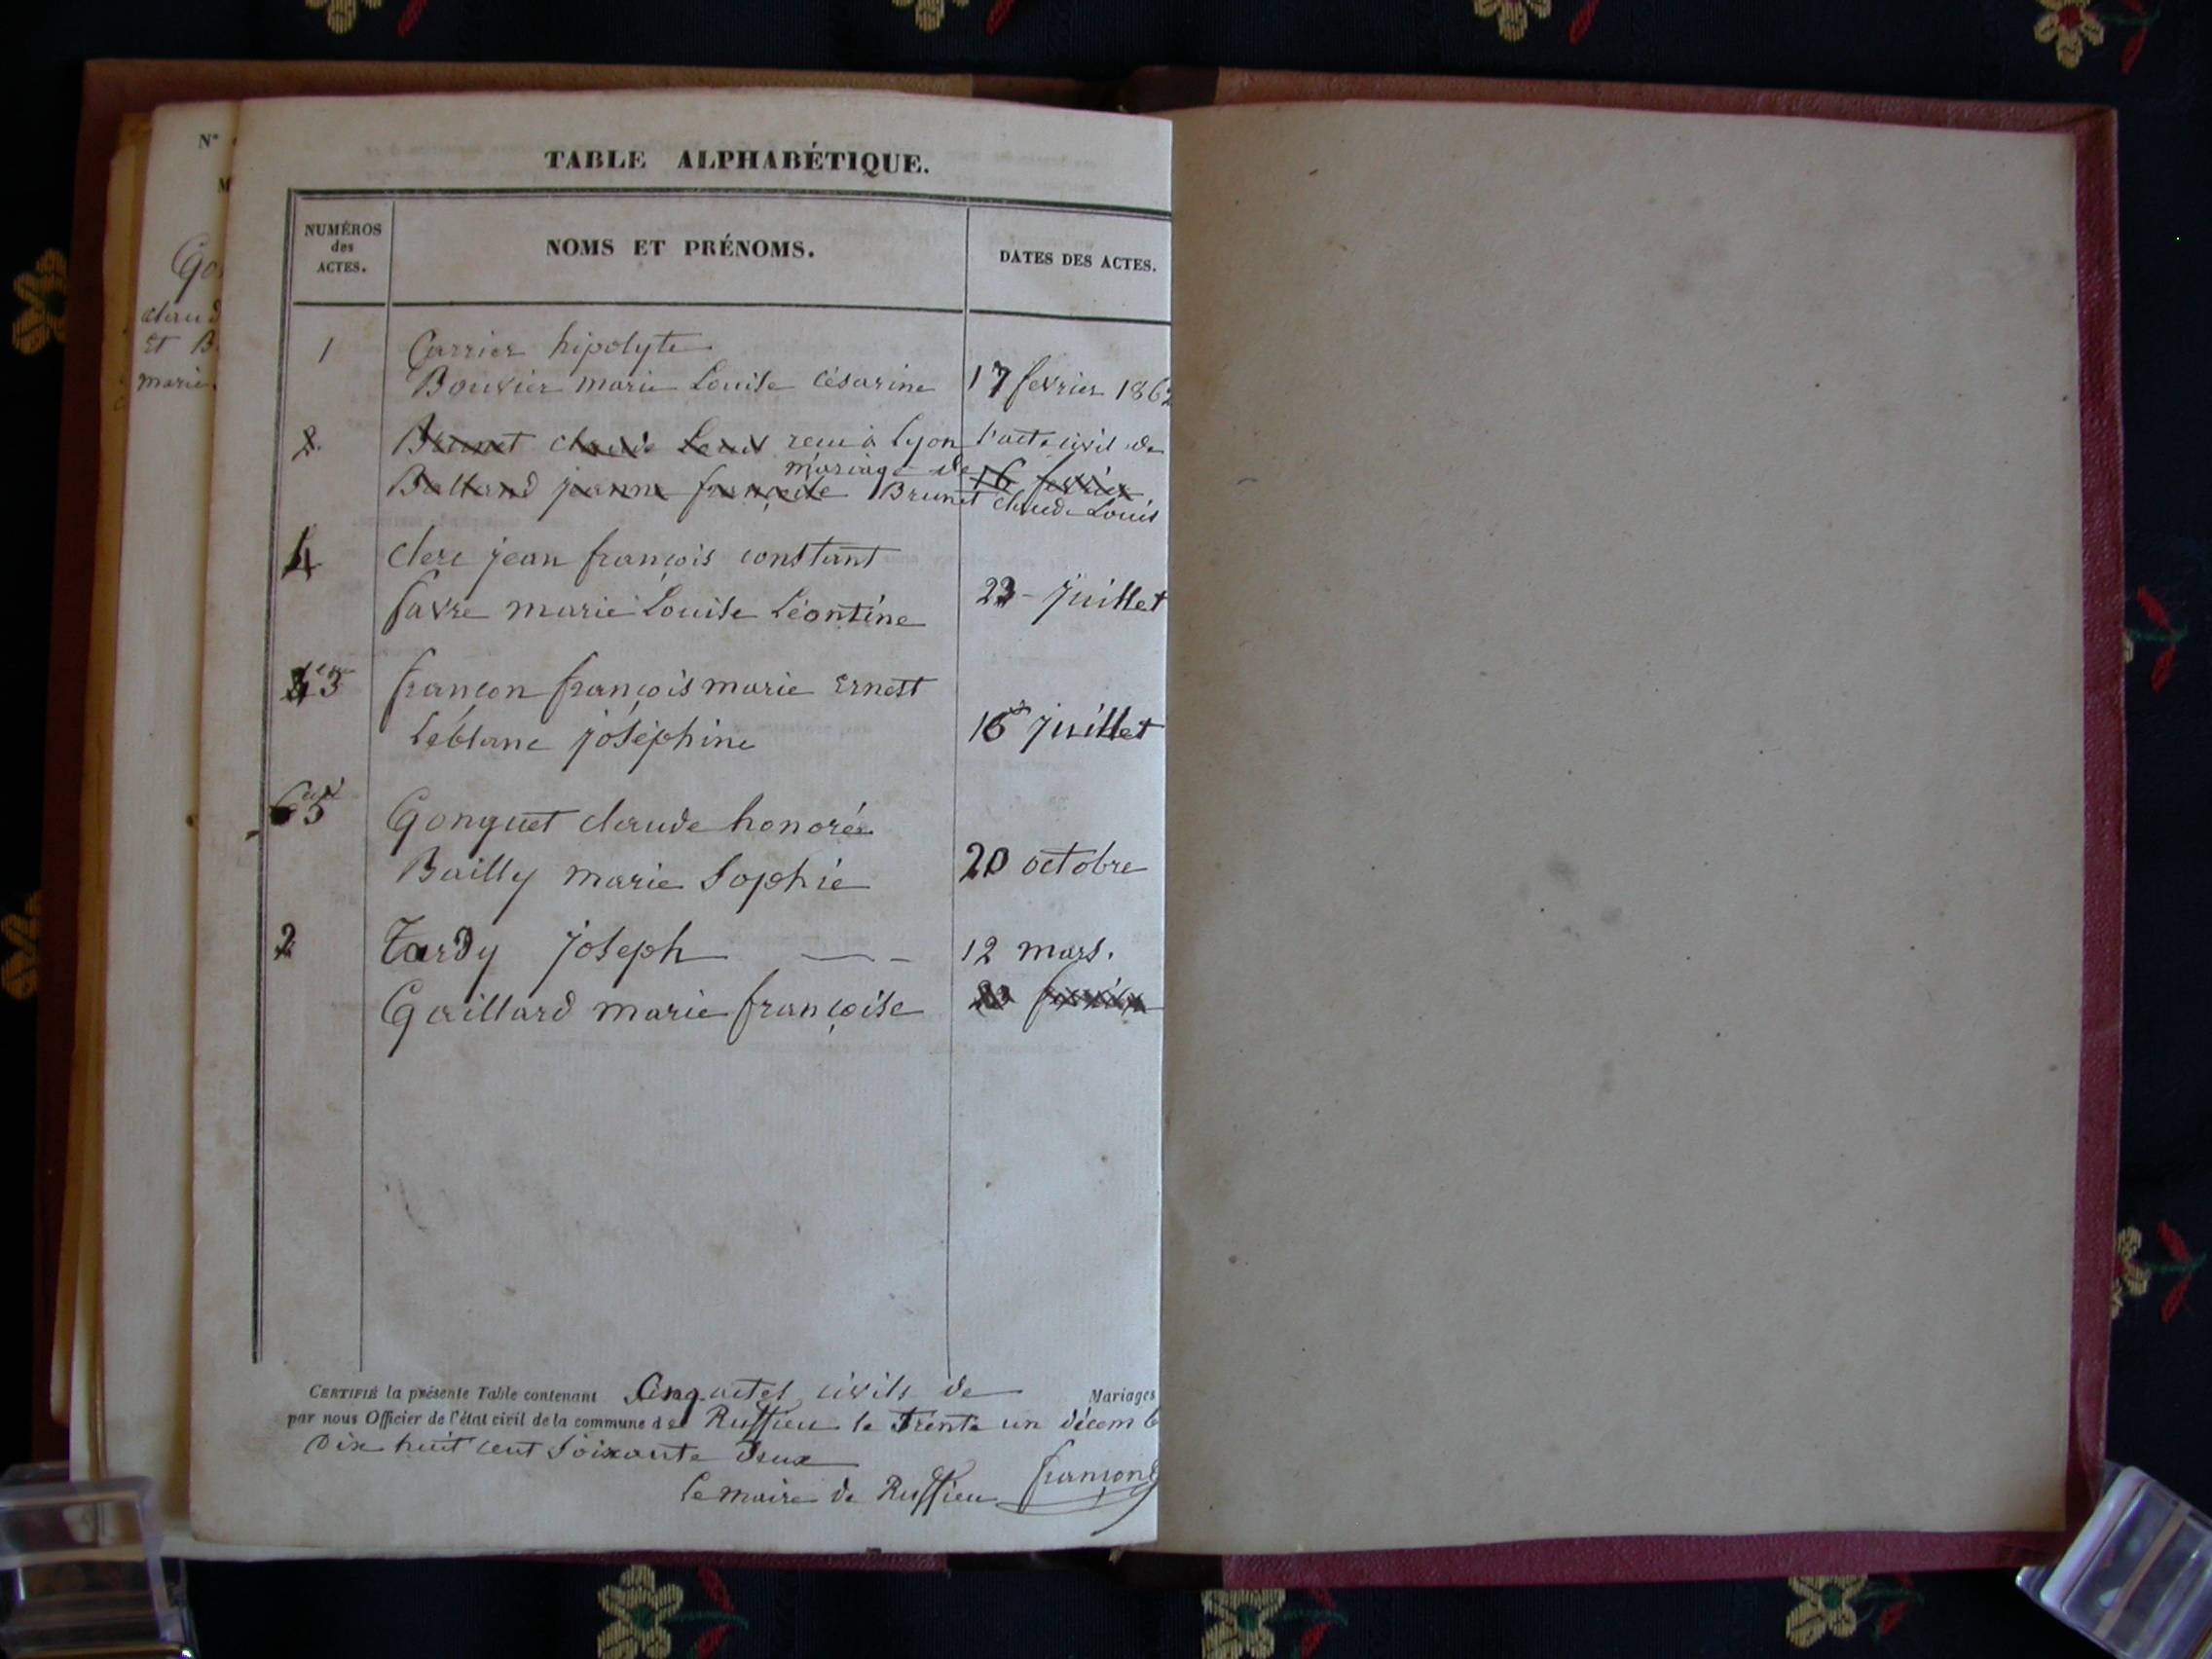 N°
M
Go
claud
Et B
marie
TABLE ALPHABÉTIQUE.
NUMÉROS
des
ACTES.
NOMS ET PRÉNOMS.
DATES DES ACTES.
1 Carrier hipolyte
Bouvier marie Louise Césarine 17 fevrier 1862
2 Brunet claude Louis reçu à Lyon l'acte civil de
mariage de
Balland jeanne françoise Brunet 16 fevrier
claude Louis
4 clerc jean françois constant
favre marie Louise Léontine 23 juillet
3 françon françois marie Ernest
Leblanc joséphine 16 juillet
5 Gonguet claude honorée
Bailly marie Sophie 20 octobre
2 Tardy joseph 12 mars.
Gaillard marie françoise
CERTIFIÉ la présente Table contenant Cinq actes civils de Mariages
par nous Officier de l'état civil de la commune de Ruffieu le Trente un décemb
Dix huit cent Soixante Deux
le maire de Ruffieu françon